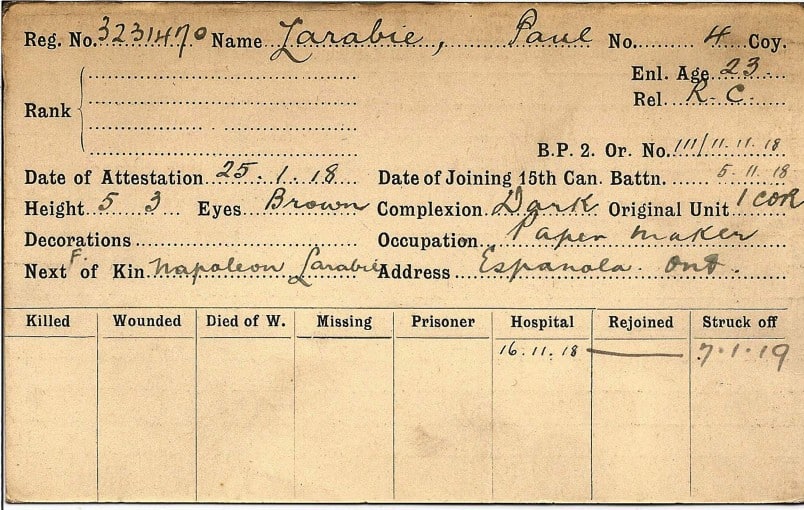 Reg. No. 3231470 Name Larabie, Paul No. 4 Coy.
Enl. Age 23
Rel. R. C.
Rank
B.P. 2. Or. No. 111/11.11.18
Date of Attestation 25.1.18 Date of Joining 15th Can. Battn. 5.11.18
Height 5 3 Eyes Brown Complexion Dark Original Unit 1 COR
Decorations Occupation Paper maker
Next F. of Kin Napoleon Larabie Address Espanola. Ont.
Killed Wounded Died of W. Missing Prisoner Hospital Rejoined Struck off
16.11.18 — 7.1.19